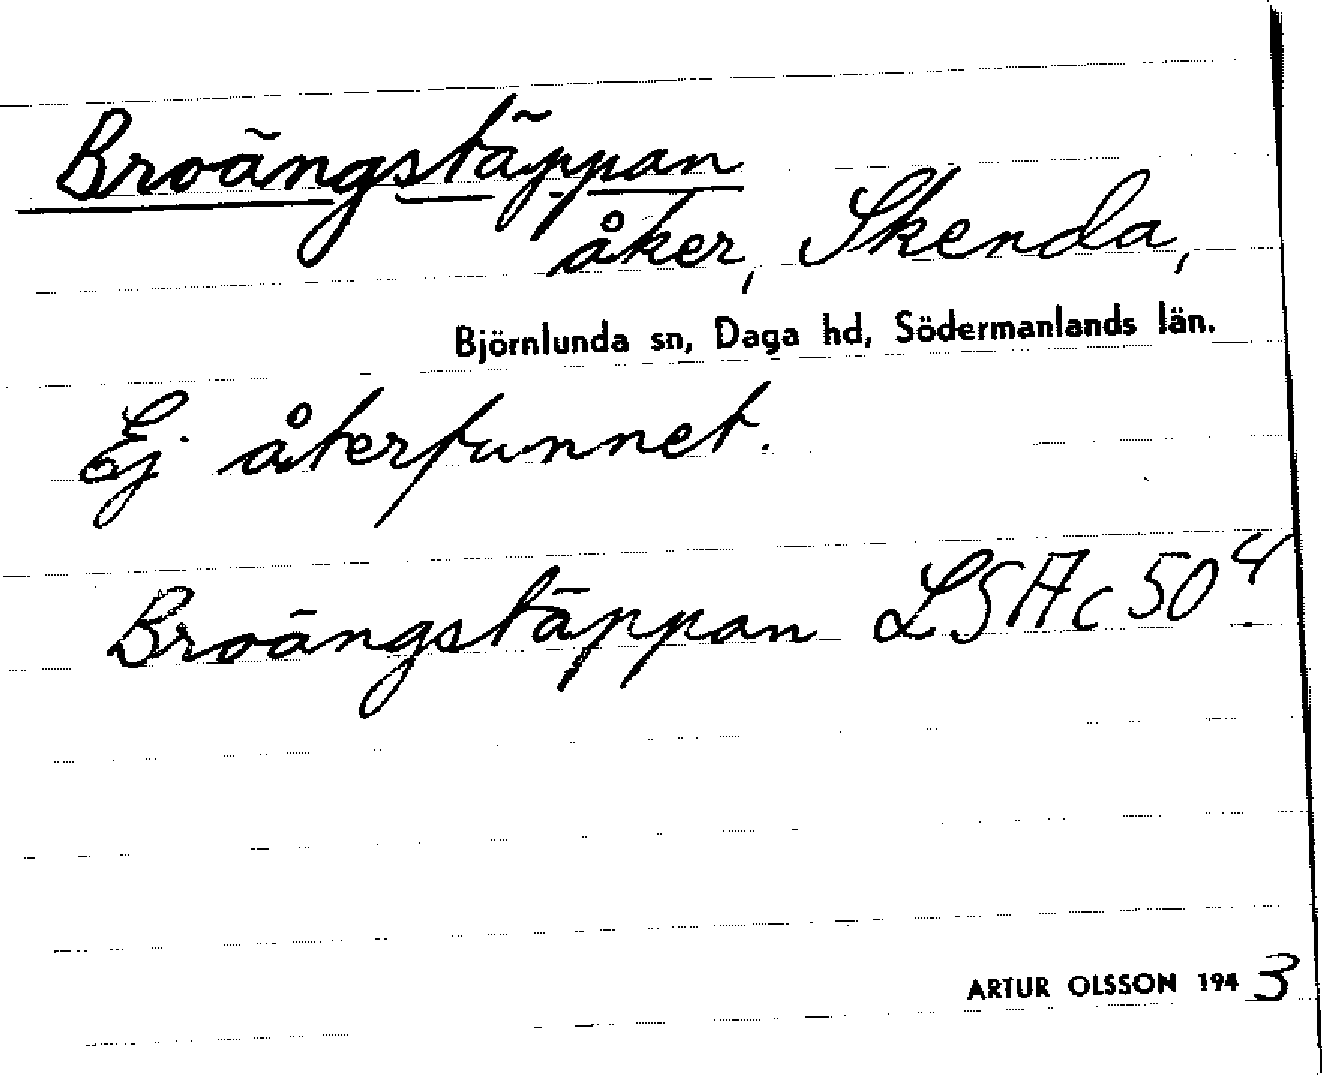 Broängstäppan
åker, Skenda,
Björnlunda sn, Daga hd, Södermanlands län.
Ej återfunnet.
Broängstäppan LSA c 50 4.
ARTUR OLSSON 1943